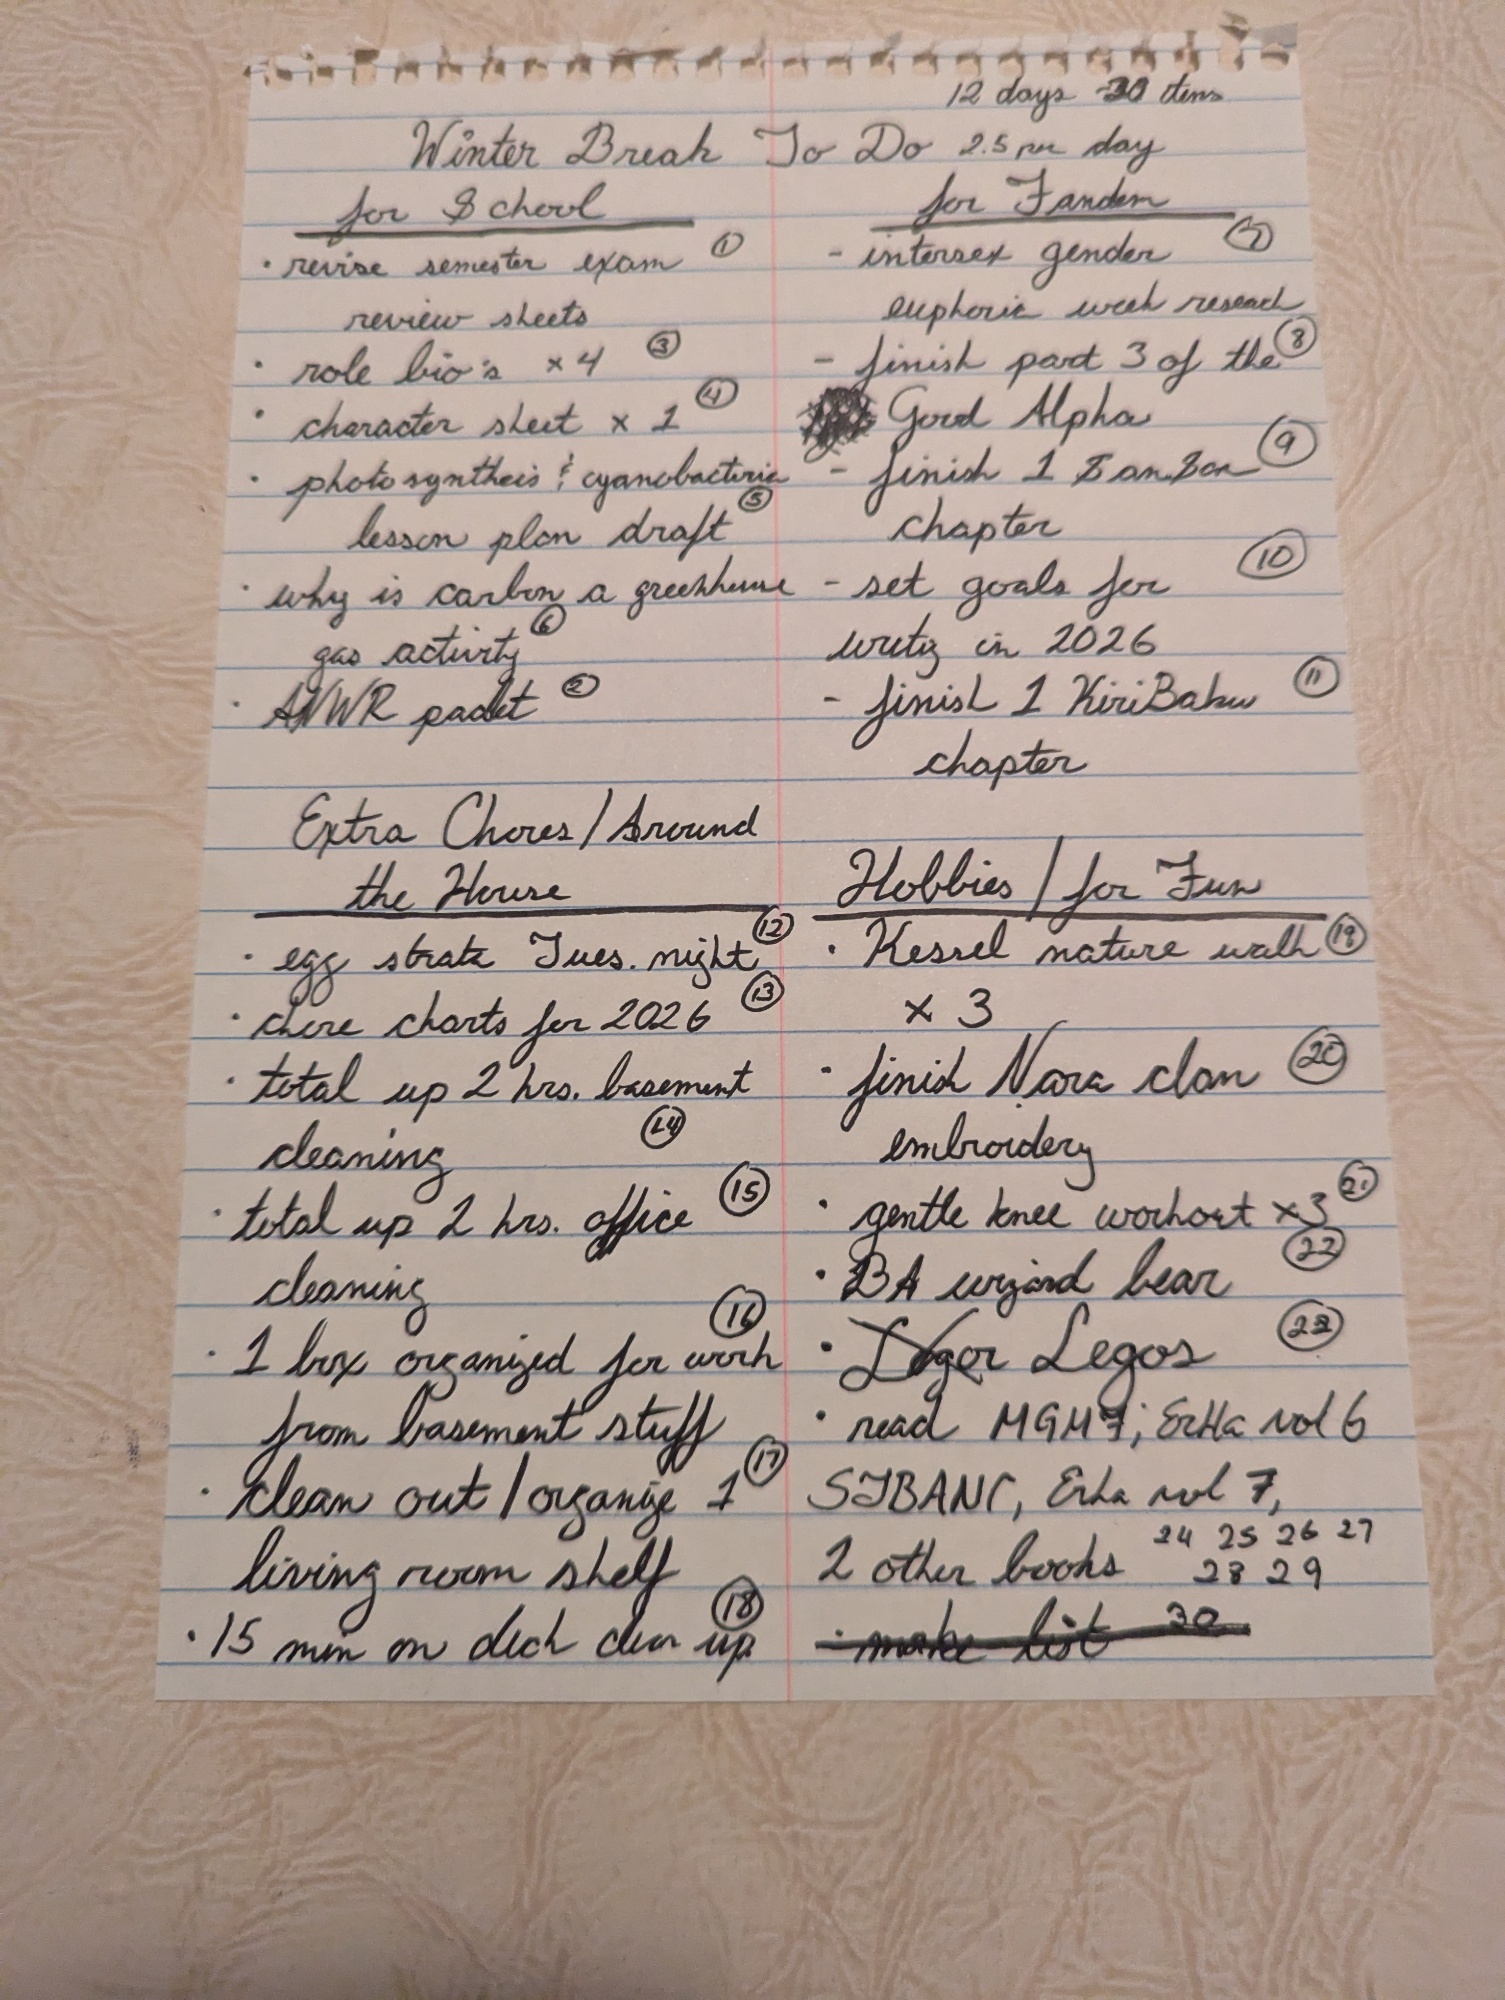 12 days 30 items
Winter Break To Do 2.5 per day
for School
· revise semester exam ①
review sheets
· role bio's x4 ③
· character sheet x 1 ④
· photosyntheis & cyanobacteria
lesson plan draft ⑤
· why is carbon a greenhouse
gas activity ⑥
· ANWR packet ②
for Fandom
- intersex gender ⑦
euphoric week research
- finish part 3 of the ⑧
Good Alpha
- finish 1 ⑨
chapter
- set goals for ⑩
writing in 2026
- finish 1 KiriBaku ⑪
chapter
Extra Chores/Around
the House
· egg strata Tues. night ⑫
· chore charts for 2026 ⑬
· total up 2 hrs. basement
cleaning ⑭
· total up 2 hrs. office ⑮
cleaning
· 1 box organized for work ⑯
from basement stuff
· clean out/organize 1 ⑰
living room shelf
· 15 min on deck clean up ⑱
Hobbies/for Fun
· Kessel nature walk ⑲
x 3
· finish Nara clan ⑳
embroidery
· gentle knee workout x3 ㉑
· BA wizard bear ㉒
· Legos ㉓
· read MGM 7; ErHa vol 6
Erha vol 7,
2 other books 24 25 26 27
28 29
· make list 30